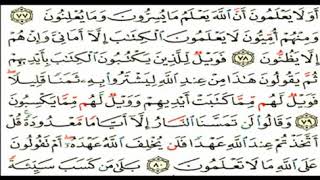 أَوَلَا يَعْلَمُونَ أَنَّ اللَّهَ يَعْلَمُ مَا يُسِرُّونَ وَمَا يُعْلِنُونَ ٧٧
وَمِنْهُمْ أُمِّيُّونَ لَا يَعْلَمُونَ الْكِتَٰبَ إِلَّا أَمَانِيَّ وَإِنْ هُمْ
إِلَّا يَظُنُّونَ ٧٨ فَوَيْلٌ لِّلَّذِينَ يَكْتُبُونَ الْكِتَٰبَ بِأَيْدِيهِمْ
ثُمَّ يَقُولُونَ هَٰذَا مِنْ عِندِ اللَّهِ لِيَشْتَرُوا بِهِ ثَمَنًا قَلِيلًا
فَوَيْلٌ لَّهُم مِّمَّا كَتَبَتْ أَيْدِيهِمْ وَوَيْلٌ لَّهُم مِّمَّا يَكْسِبُونَ
٧٩ وَقَالُوا لَن تَمَسَّنَا النَّارُ إِلَّا أَيَّامًا مَّعْدُودَةً قُلْ
أَتَّخَذْتُمْ عِندَ اللَّهِ عَهْدًا فَلَن يُخْلِفَ اللَّهُ عَهْدَهُ أَمْ تَقُولُونَ
عَلَى اللَّهِ مَا لَا تَعْلَمُونَ ٨٠ بَلَىٰ مَن كَسَبَ سَيِّئَةً